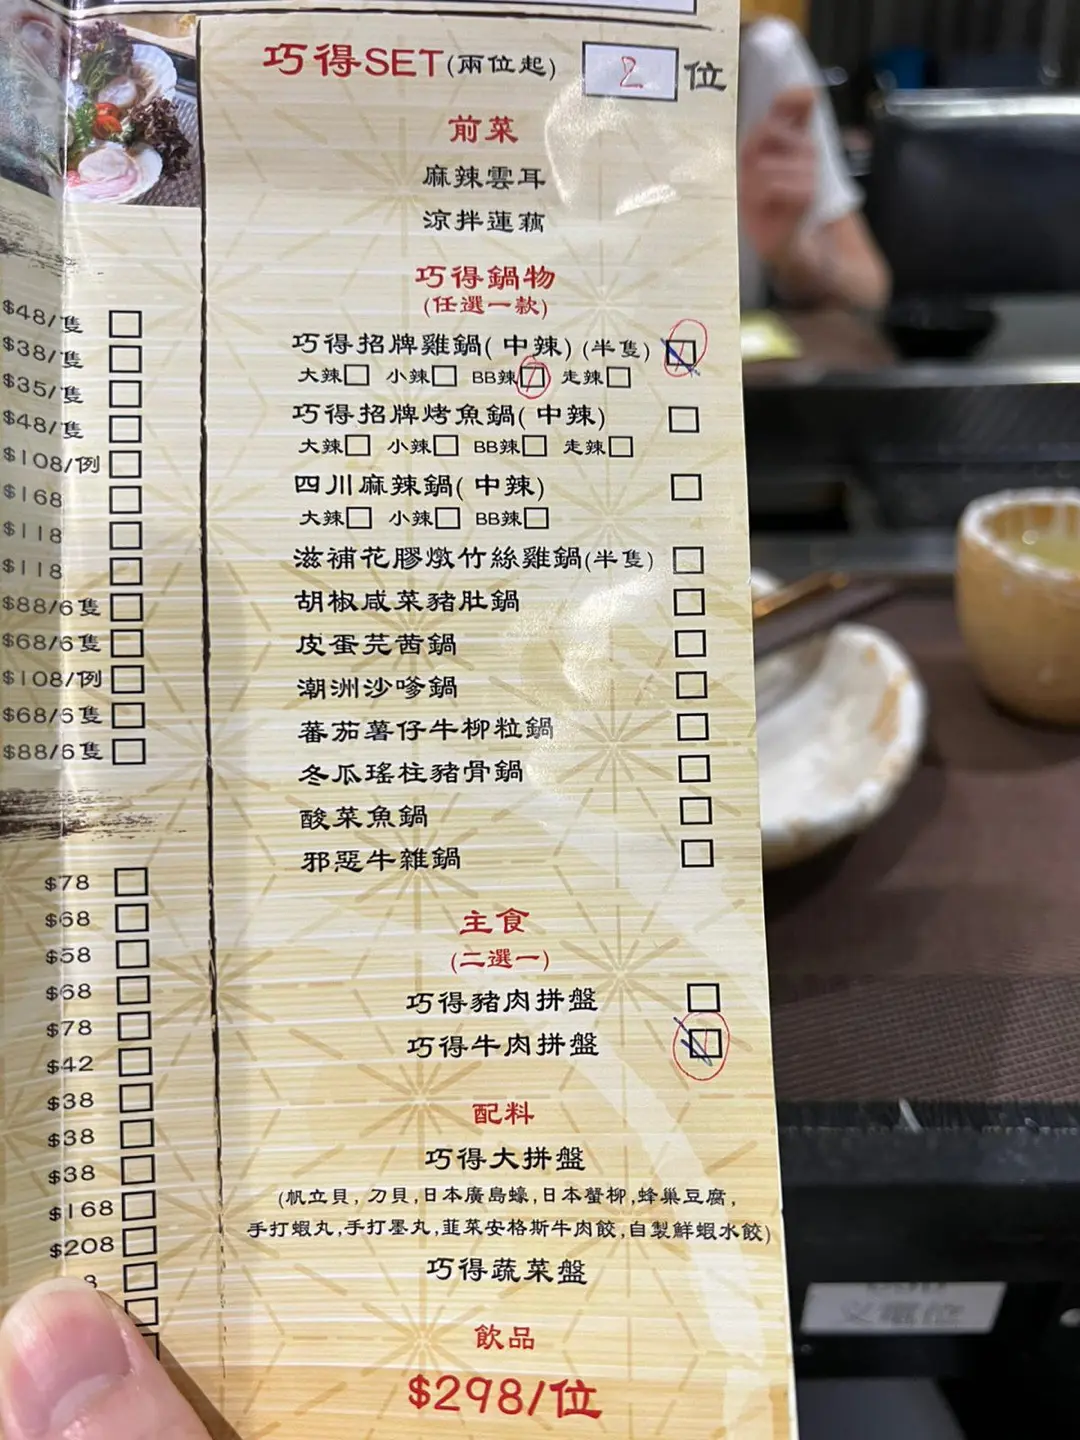 巧得SET(兩位起) 2 位
前菜
麻辣雲耳
涼拌蓮藕
巧得鍋物
(任選一款)
巧得招牌雞鍋(中辣)(半隻)
大辣 小辣 BB辣 走辣
巧得招牌烤魚鍋(中辣)
大辣 小辣 BB辣 走辣
四川麻辣鍋(中辣)
大辣 小辣 BB辣
滋補花膠燉竹絲雞鍋(半隻)
胡椒咸菜豬肚鍋
皮蛋芫茜鍋
潮洲沙嗲鍋
蕃茄薯仔牛柳粒鍋
冬瓜瑤柱豬骨鍋
酸菜魚鍋
邪惡牛雜鍋
主食
(二選一)
巧得豬肉拼盤
巧得牛肉拼盤
配料
巧得大拼盤
(帆立貝,刀貝,日本廣島蠔,日本蟹柳,蜂巢豆腐,
手打蝦丸,手打墨丸,韮菜安格斯牛肉餃,自製鮮蝦水餃)
巧得蔬菜盤
飲品
$298/位
$48/隻
$38/隻
$35/隻
$48/隻
$108/例
$168
$118
$118
$88/6隻
$68/6隻
$108/例
$68/6隻
$88/6隻
$78
$68
$58
$68
$78
$42
$38
$38
$38
$168
$208